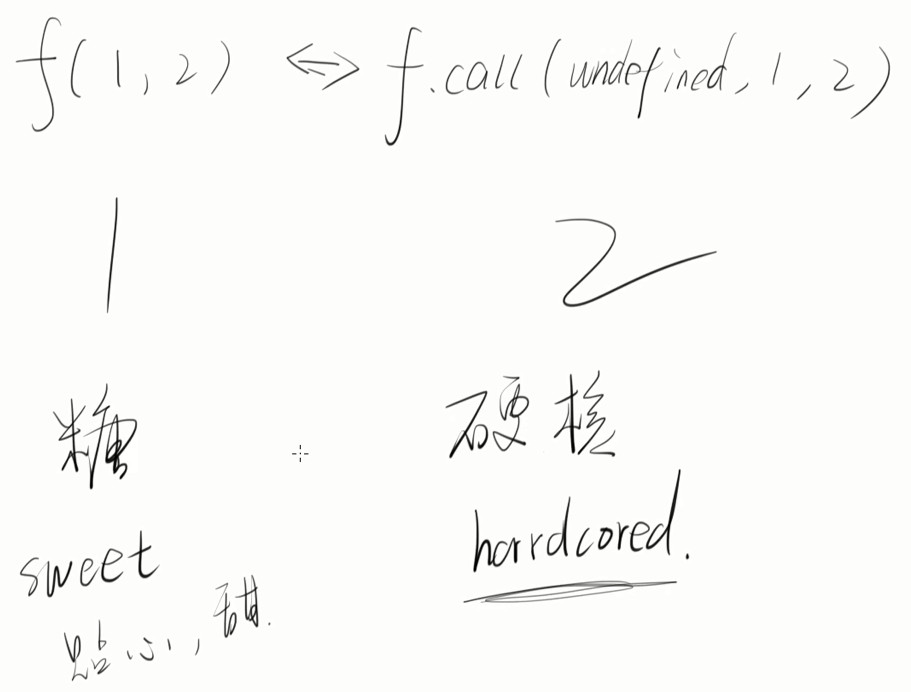 f(1,2) <=> f.call(undefined,1,2)
1 2
糖 硬核
sweet harrdcored.
贴心,甜.